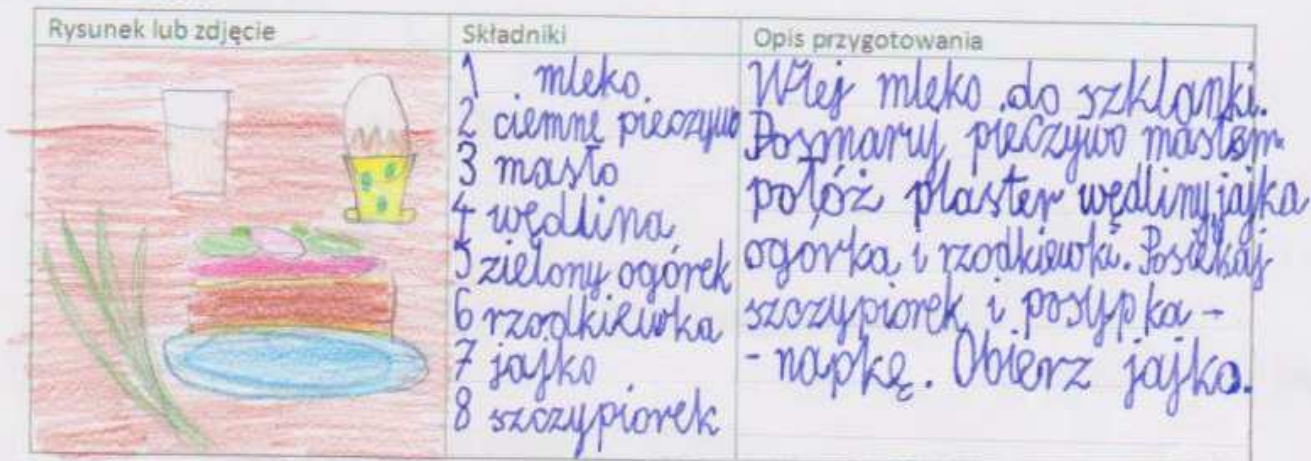 Rysunek lub zdjęcie
Składniki
Opis przygotowania
1 mleko
2 ciemne pieczywo
3 masło
4 wędlina
5 zielony ogórek
6 rzodkiewka
7 jajko
8 szczypiorek
Wlej mleko do szklanki.
Posmaruj pieczywo masłem
połóż plaster wędliny jajka
ogorka i rzodkiewki. Posiekaj
szczypiorek i posyp ka-
-napkę. Obierz jajko.